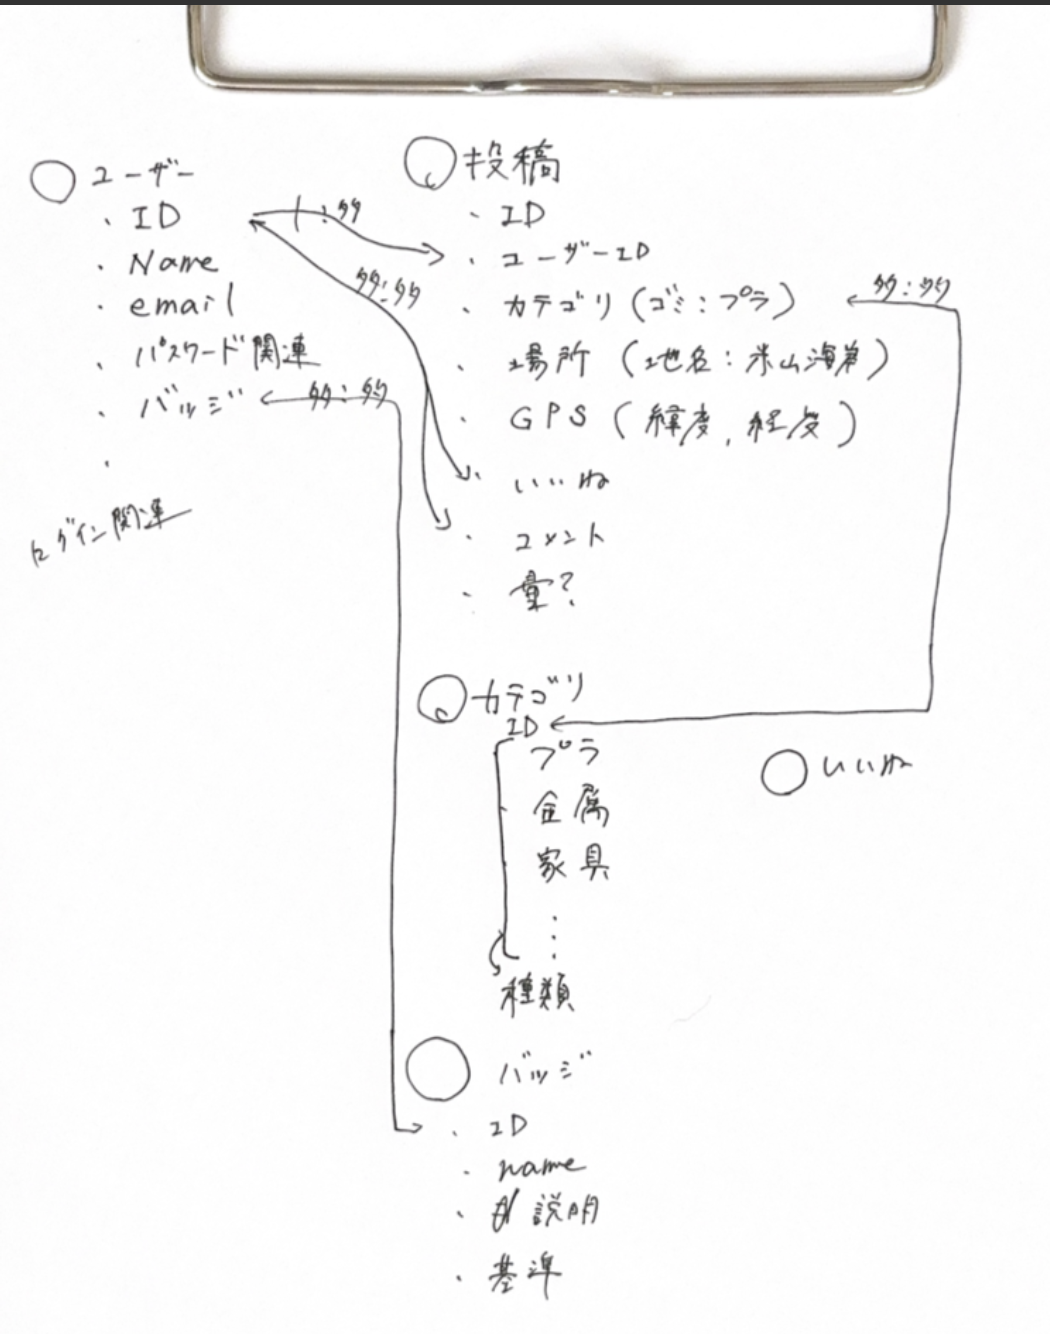 ユーザー
・ID
・Name
・email
・パスワード関連
・バッジ
・
ログイン関連
1:多
多:多
多:多
投稿
・ID
・ユーザーID
・カテゴリ(ゴミ:プラ)
多:多
・場所(地名:米山海岸)
・GPS(緯度,経度)
・いいね
・コメント
・量?
カテゴリ
ID
プラ
金属
家具
⋮
種類
いいね
バッジ
・ID
・name
・説明
・基準